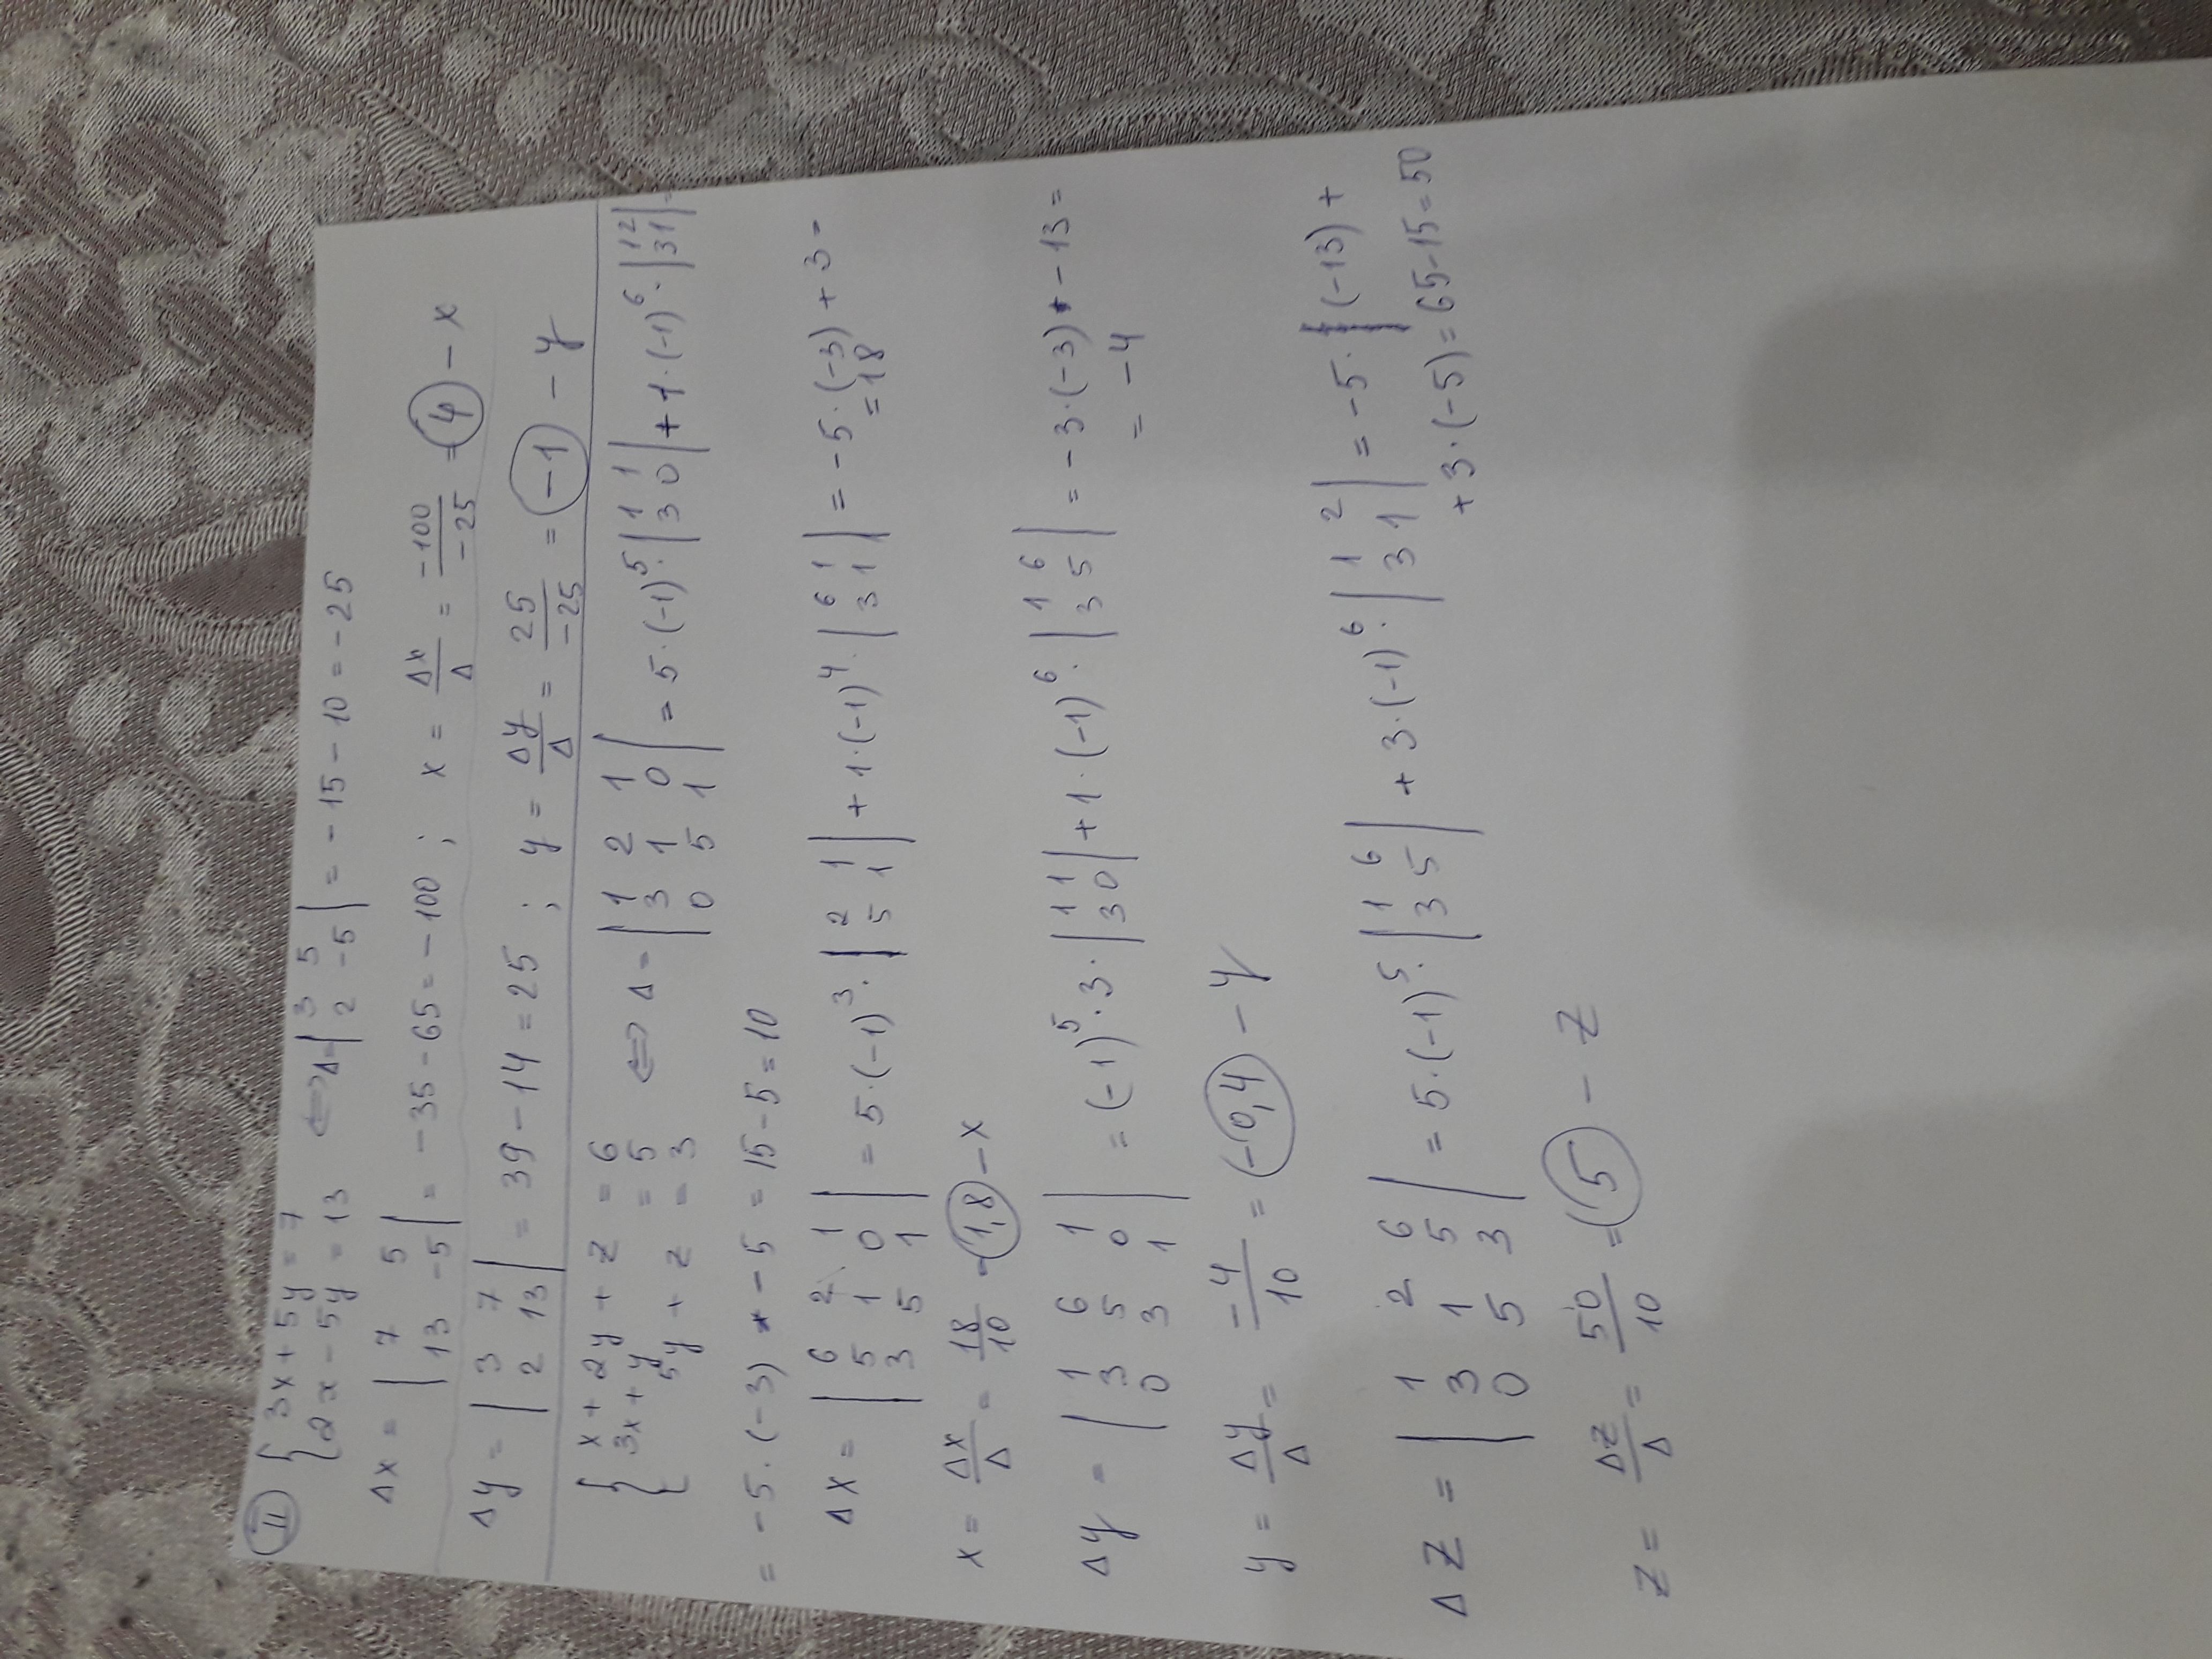 II { 3x + 5y = 7
2x - 5y = 13 ⇔ Δ= | 3 5
2 -5 | = -15 - 10 = -25
Δx = | 7 5
13 -5 | = -35 - 65 = -100 ; x = Δx/Δ = -100/-25 = 4 - x
Δy = | 3 7
2 13 | = 39 - 14 = 25 ; y = Δy/Δ = 25/-25 = -1 - y
{ x + 2y + z = 6
3x + y = 5
5y + z = 3 ⇔ Δ = | 1 2 1
3 1 0
0 5 1 | = 5·(-1)^5·| 1 1
3 0 | + 1·(-1)^6·| 1 2
3 1 | =
= -5·(-3) - 5 = 15 - 5 = 10
Δx = | 6 2 1
5 1 0
3 5 1 | = 5·(-1)^3·| 2 1
5 1 | + 1·(-1)^4·| 6 1
3 1 | = -5·(-3) + 3 =
= 18
x = Δx/Δ = 18/10 = 1,8 - x
Δy = | 1 6 1
3 5 0
0 3 1 | = (-1)^5·3·| 1 1
3 0 | + 1·(-1)^6·| 1 6
3 5 | = -3·(-3) - 13 =
= -4
y = Δy/Δ = -4/10 = -0,4 - y
Δz = | 1 2 6
3 1 5
0 5 3 | = 5·(-1)^5·| 1 6
3 5 | + 3·(-1)^6·| 1 2
3 1 | = -5·(-13) +
+ 3·(-5) = 65 - 15 = 50
z = Δz/Δ = 50/10 = 5 - z